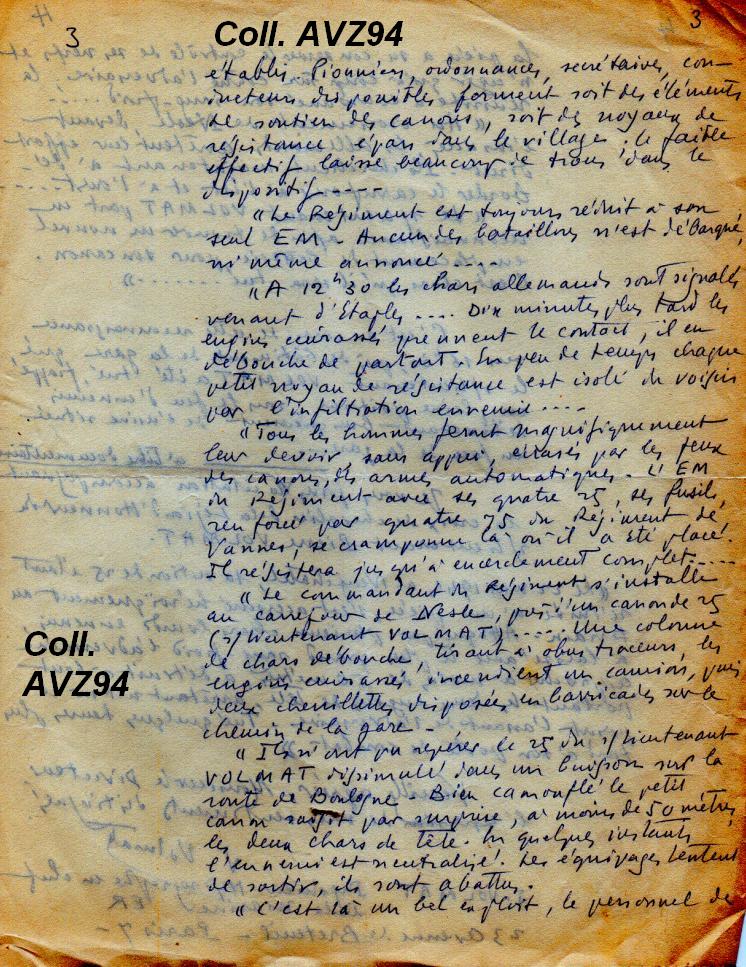 3
Coll. AVZ94
3
établis. Pionniers, ordonnances, secrétaires, con-
ducteurs disponibles forment soit des éléments
de soutien des canons, soit des noyaux de
résistance épars dans le village ; le faible
effectif laisse beaucoup de trous dans le
dispositif ----
"Le Régiment est toujours réduit à son
seul EM - Aucun des bataillons n'est débarqué,
ni même annoncé ....
"A 12h30 les chars allemands sont signalés
venant d'Etaples .... Dix minutes plus tard les
engins cuirassés prennent le contact, il en
débouche de partout. En peu de temps chaque
petit noyau de résistance est isolé du voisin
par l'infiltration ennemie ....
"Tous les hommes feront magnifiquement
leur devoir, sans appui, écrasés par les feux
des canons, des armes automatiques. L'EM
du Régiment avec ses quatre 25, ses fusils,
renforcé par quatre 75 du Régiment de
Vannes, se cramponne là où il a été placé.
Il résistera jusqu'à encerclement complet....
"Le commandant du Régiment s'installe
au carrefour de Nesle, près d'un canon de 25
(s/lieutenant VOLMAT) ..... Une colonne
de chars débouche, tirant à obus traceurs, les
engins cuirassés incendient un camion, puis
deux chenillettes disposées en barricades sur le
chemin de la gare -
"Ils n'ont pu repérer le 25 du s/lieutenant
VOLMAT dissimulé dans un buisson sur la
route de Boulogne - Bien camouflé le petit
canon surgit par surprise, à moins de 50 mètres,
les deux chars de tête. En quelques instants
l'ennemi est neutralisé. Les équipages tentent
de sortir, ils sont abattus.
"C'est là un bel exploit, le personnel de
Coll.
AVZ94